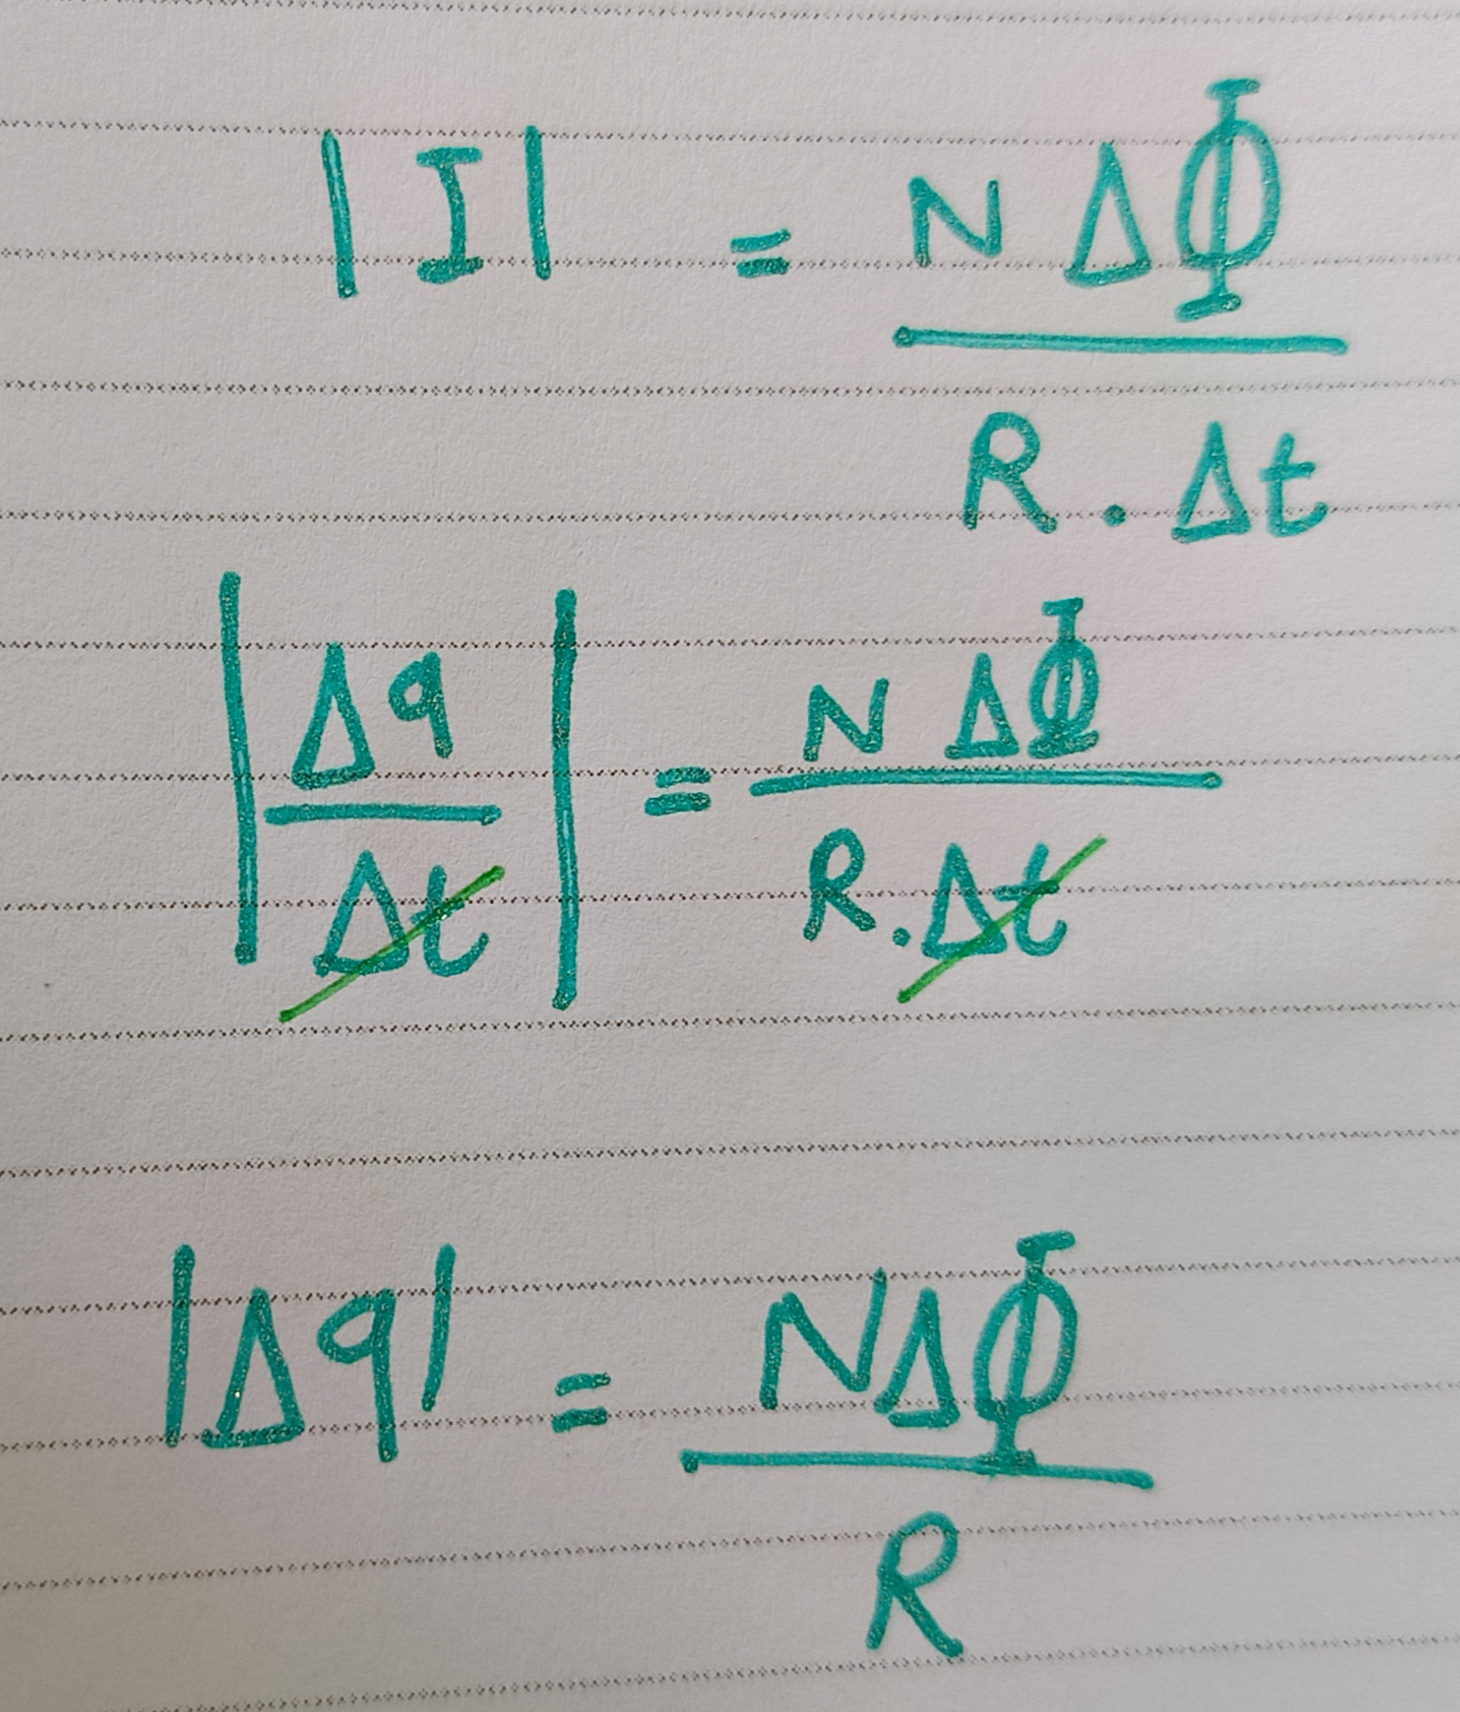 |I| = N ΔΦ / R . Δt
|Δq / Δt| = N ΔΦ / R . Δt
|Δq| = NΔΦ / R